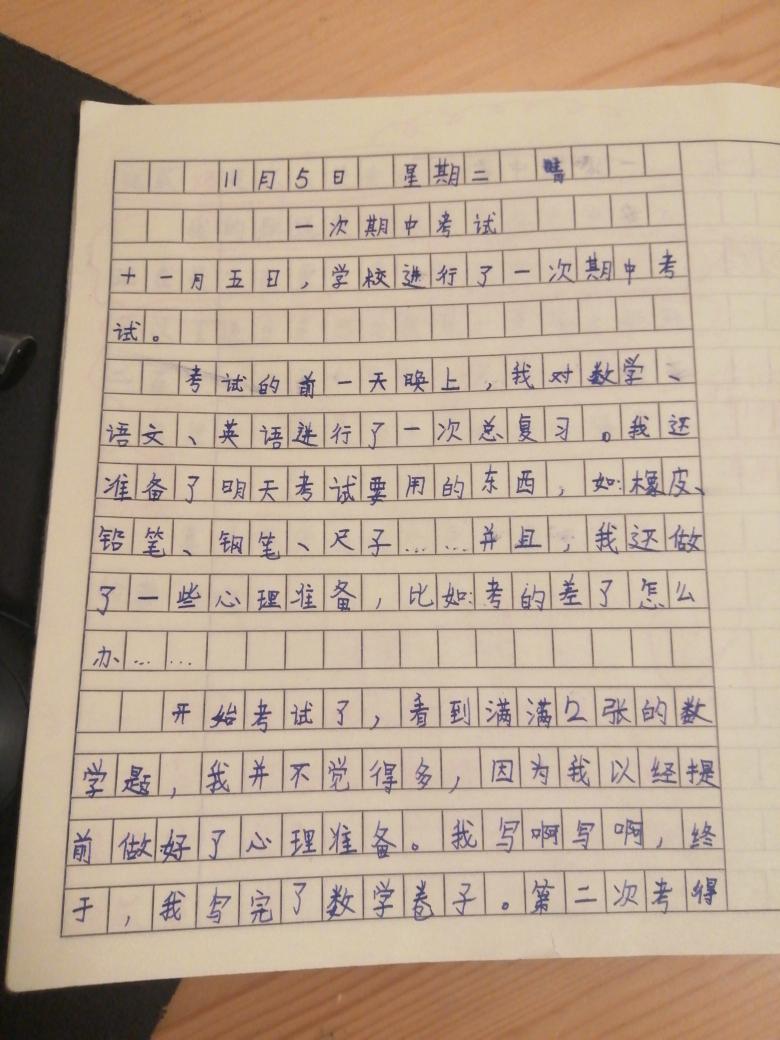 11月5日 星期二 晴
一次期中考试
十一月五日，学校进行了一次期中考
试。
考试的前一天晚上，我对数学、
语文、英语进行了一次总复习。我还
准备了明天考试要用的东西，如:橡皮、
铅笔、钢笔、尺子……并且，我还做
了一些心理准备，比如:考的差了怎么
办……
开始考试了，看到满满2张的数
学题，我并不觉得多，因为我以经提
前做好了心理准备。我写啊写啊，终
于，我写完了数学卷子。第二次考得